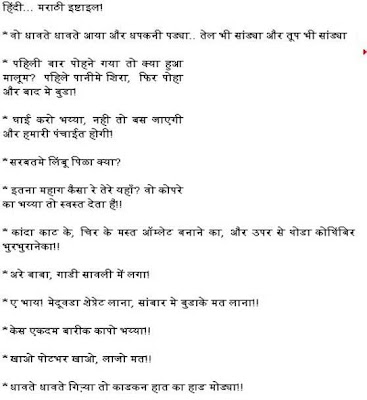 हिंदी... मराठी इष्टाइल!
* वो धावते धावते आया और धपकनी पड्या.. तेल भी सांड्या और तूप भी सांड्या
* पहिली बार पोहने गया तो क्या हुआ
मालूम? पहिले पानीमे शिरा, फिर पोहा
और बाद मे बुडा!
* घाई करो भय्या, नही तो बस जाएगी
और हमारी पंचाईत होगी!
* सरबतमे लिंबू पिळा क्या?
* इतना महाग कैसा रे तेरे यहाँ? वो कोपरे
का भय्या तो स्वस्त देता है!!
* कांदा काट के, चिर के मस्त ऑम्लेट बनाने का, और उपर से थोडा कोथिंबिर
भुरभुरानेका!!
* अरे बाबा, गाडी सावली में लगा!
* ए भाय! मेदूवडा शेप्रेट लाना, सांबार मे बुडाके मत लाना!!
* केस एकदम बारीक कापो भय्या!!
* खाओ पोटभर खाओ, लाजो मत!!
* धावते धावते गिऱ्या तो काडकन हात का हाड मोड्या!!